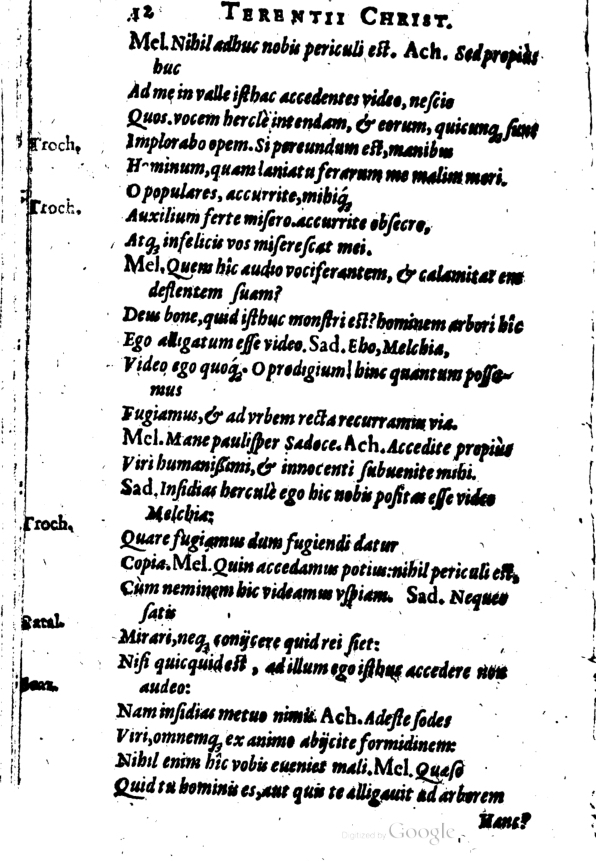 12 TERENTII CHRIST.
Mel. Nihil adhuc nobis periculi est. Ach. Sed propiùs
huc
Ad me in valle isthac accedentes video, nescio
Quos. vocem herclè intendam, & eorum, quicunq; sunt
Troch. Implorabo opem. Si pereundum est, manibus
Hominum, quam laniatu ferarum me malim mori.
Troch. O populares, accurrite, mihiq;
Auxilium ferte misero. accurrite obsecro,
Atq; infelicis vos miserescat mei.
Mel. Quem hîc audio vociferantem, & calamitatem
deflentem suam?
Deus bone, quid isthuc monstri est? hominem arbori hîc
Ego alligatum esse video. Sad. Eho, Melchia,
Video ego quoq;. O prodigium! hinc quantum possu-
mus
Fugiamus, & ad vrbem recta recurramus via.
Mel. Mane paulisper Sadoce. Ach. Accedite propiùs
Viri humanissimi, & innocenti subuenite mihi.
Sad. Insidias herculè ego hic nobis positas esse video
Melchia:
Troch. Quare fugiamus dum fugiendi datur
Copia. Mel. Quin accedamus potius: nihil periculi est,
Cùm neminem hic videamus vspiam. Sad. Nequeo
satis
Mirari, neq; conijcere quid rei siet:
Nisi quicquid est, ad illum ego isthuc accedere non
audeo:
Nam insidias metuo nimis. Ach. Adeste sodes
Viri, omnemq; ex animo abijcite formidinem:
Nihil enim hîc vobis eueniet mali. Mel. Quæso
Quid tu hominis es, aut quis te alligauit ad arborem
Hanc?
Digitized by Google